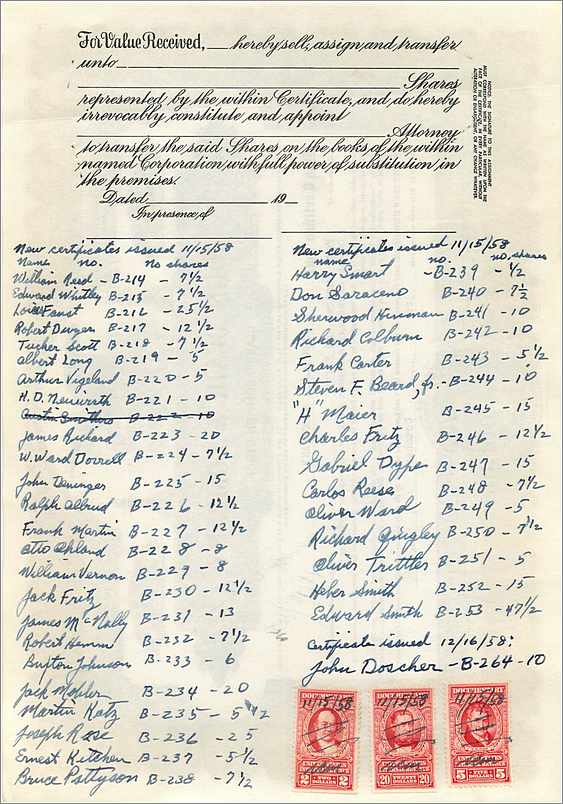 For Value Received, ___ hereby sell, assign and transfer
unto
Shares
represented by the within Certificate, and do hereby
irrevocably constitute and appoint
Attorney
to transfer the said Shares on the books of the within
named Corporation with full power of substitution in
the premises.
Dated 19
In presence of
NOTICE: THE SIGNATURE TO THIS ASSIGNMENT
MUST CORRESPOND WITH THE NAME AS WRITTEN UPON THE
FACE OF THE CERTIFICATE, IN EVERY PARTICULAR, WITHOUT
ALTERATION OR ENLARGEMENT, OR ANY CHANGE WHATEVER.
New certificates issued 11/15/58
Name no. No shares
William Reed - B-214 - 7 1/2
Edward Whitley B-215 - 7 1/2
Faust B-216 - 25 1/2
Robert B-217 - 12 1/2
Tucker Scott B-218 - 7 1/2
Albert Long B-219 - 5
Arthur Vigeland B-220 - 5
H. D. B-221 - 10
Austin Smithers B-222 - 10
James Richard B-223 - 20
W. Ward Dorrell B-224 - 7 1/2
John Deninger B-225 - 15
Ralph Albrud B-226 - 12 1/2
Frank Martin B-227 - 12 1/2
Otto Ohland B-228 - 8
William Vernon B-229 - 8
Jack Fritz B-230 - 12 1/2
James McNally B-231 - 13
Robert Hemm B-232 - 7 1/2
Buxton Johnson B-233 - 6
Jack Mohler B-234 - 20
Martin Katz B-235 - 5 1/2
Joseph Rose B-236 - 25
Ernest Kitchen B-237 - 5 1/2
Bruce Pattyson B-238 - 7 1/2
New certificates issued 11/15/58
name no. no. shares
Harry Smart - B-239 - 1/2
Don Saraceno B-240 - 7 1/2
Sherwood Hinman B-241 - 10
Richard Colburn B-242 - 10
Frank Carter B-243 - 5 1/2
Steven F. Beard, Jr. - B-244 - 10
"H" Maier B-245 - 15
Charles Fritz B-246 - 12 1/2
Gabriel Dype B-247 - 15
Carlos Reese B-248 - 7 1/2
Oliver Ward B-249 - 5
Richard Quigley B-250 - 7 1/2
Trittler B-251 - 5
Heber Smith B-252 - 15
Edward Smith B-253 - 47 1/2
Certificate issued 12/16/58:
John Doscher - B-264 - 10
DOCUMENTARY
11/15/58
2 DOLLARS 2
DOCUMENTARY
11/15/58
20 TWENTY DOLLARS 20
DOCUMENTARY
11/15/58
5 FIVE DOLLARS 5